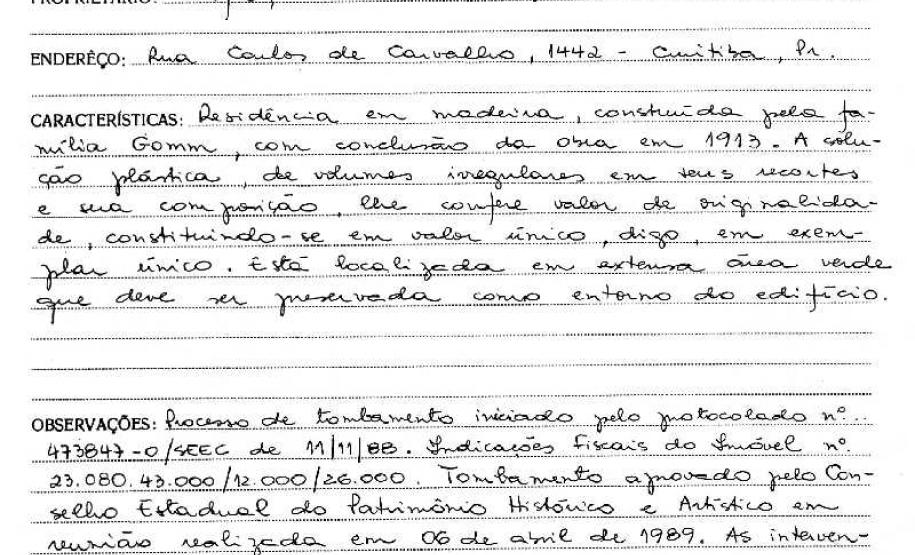 PROPRIETÁRIO:
ENDERÊÇO: Rua Carlos de Carvalho, 1442 - Curitiba, Pr.
CARACTERÍSTICAS: Residência em madeira, construída pela fa-
mília Gomm, com conclusão da obra em 1913. A solu-
ção plástica, de volumes irregulares em seus recortes
e sua composição, lhe confere valor de originalida-
de, constituindo-se em valor único, digo, em exem-
plar único. Está localizada em extensa área verde
que deve ser preservada como entorno do edifício.
OBSERVAÇÕES: Processo de tombamento iniciado pelo protocolado nº
473847-0/SEEC de 11/11/88. Indicações Fiscais do Imóvel nº
23.080.43.000/12.000/26.000. Tombamento aprovado pelo Con-
selho Estadual do Patrimônio Histórico e Artístico em
reunião realizada em 06 de abril de 1989. As interven-